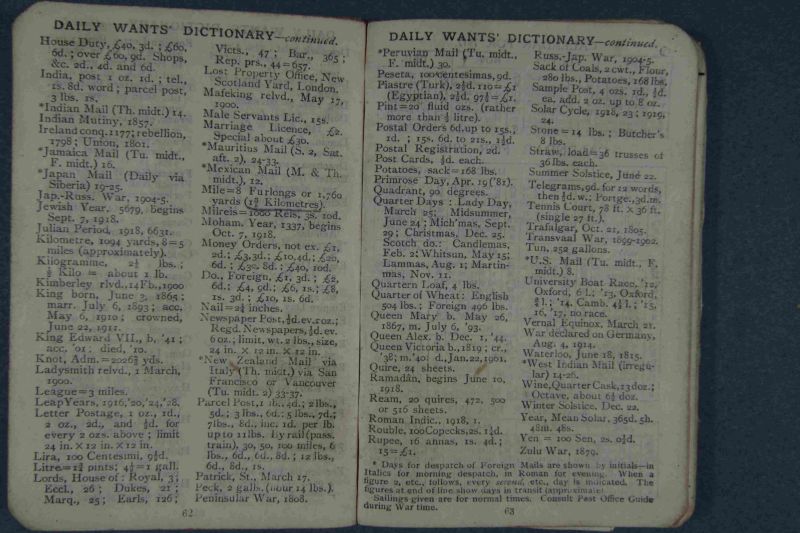 DAILY WANTS' DICTIONARY—continued.
House Duty, £40, 3d. ; £60,
6d. ; over £60, 9d. Shops,
&c. 2d., 4d. and 6d.
India, post 1 oz. 1d. ; tel.,
1s. 8d. word ; parcel post,
3 lbs. 1s.
*Indian Mail (Th. midt.) 14.
Indian Mutiny, 1857.
Ireland conq. 1177; rebellion,
1798 ; Union, 1801.
*Jamaica Mail (Tu. midt.,
F. midt.) 16.
*Japan Mail (Daily via
Siberia) 19-25.
Jap.-Russ. War, 1904-5.
Jewish Year, 5679, begins
Sept. 7, 1918.
Julian Period, 1918, 6631.
Kilometre, 1094 yards, 8=5
miles (approximately).
Kilogramme, 2¼ lbs. ;
½ Kilo = about 1 lb.
Kimberley rlvd., 14 Fb., 1900
King born, June 3, 1865 ;
marr. July 6, 1893 ; acc.
May 6, 1910 ; crowned,
June 22, 1911.
King Edward VII., b. '41 ;
acc. '01 ; died, '10.
Knot, Adm.=2026⅔ yds.
Ladysmith relvd., 1 March,
1900.
League=3 miles.
Leap Years, 1916, '20, '24, '28.
Letter Postage, 1 oz., 1d.,
2 oz., 2d., and ½d. for
every 2 ozs. above ; limit
24 in. × 12 in. × 12 in.
Lira, 100 Centesimi, 9½d.
Litre=1¾ pints; 4½=1 gall.
Lords, House of : Royal, 3 ;
Eccl., 26 ; Dukes, 21 ;
Marq., 25 ; Earls, 126 ;
Victs., 47 ; Bar., 365 ;
Rep. prs., 44=657.
Lost Property Office, New
Scotland Yard, London.
Mafeking relvd., May 17,
1900.
Male Servants Lic., 15s.
Marriage Licence, £2.
Special about £30.
*Mauritius Mail (S. 2, Sat.
aft. 2), 24-33.
*Mexican Mail (M. & Th.
midt.), 12.
Mile=8 Furlongs or 1,760
yards (1⅗ Kilometres).
Milreis=1000 Reis, 3s. 10d.
Moham. Year, 1337, begins
Oct. 7, 1918.
Money Orders, not ex. £1,
2d. ; £3, 3d. ; £10, 4d. ; £20,
6d. ; £30, 8d. ; £40, 10d.
Do., Foreign, £1, 3d. ; £2,
6d. ; £4, 9d. ; £6, 1s. ; £8,
1s. 3d. ; £10, 1s. 6d.
Nail=2¼ inches.
Newspaper Post, ½d. ev. 10z.;
Regd. Newspapers, ½d. ev.
6 oz.; limit, wt. 2 lbs., size,
24 in. × 12 in. × 12 in.
*New Zealand Mail via
Italy (Th. midt.) via San
Francisco or Vancouver
(Tu. midt. 2) 33-37.
Parcel Post, 1 lb., 4d. ; 2 lbs.,
5d. ; 3 lbs., 6d. ; 5 lbs., 7d. ;
7 lbs., 8d., inc. 1d. per lb.
up to 11 lbs. By rail (pass.
train), 30, 50, 100 miles, 6
lbs., 6d., 6d., 8d. ; 12 lbs.,
6d., 8d., 1s.
Patrick, St., March 17.
Peck, 2 galls. (flour 14 lbs.).
Peninsular War, 1808.
62
DAILY WANTS' DICTIONARY—continued.
*Peruvian Mail (Tu. midt.,
F. midt.) 30.
Peseta, 100 centesimas, 9d.
Piastre (Turk), 2⅛d. 110=£1
(Egyptian), 2½d. 97½=£1.
Pint=20 fluid ozs. (rather
more than ½ litre).
Postal Orders 6d. up to 15s.,
1d. ; 15s. 6d. to 21s., 1½d.
Postal Registration, 2d.
Post Cards, ½d. each.
Potatoes, sack=168 lbs.
Primrose Day, Apr. 19 ('81).
Quadrant, 90 degrees.
Quarter Days : Lady Day,
March 25 ; Midsummer,
June 24 ; Mich'mas, Sept.
29 ; Christmas, Dec. 25.
Scotch do.: Candlemas,
Feb. 2; Whitsun, May 15;
Lammas, Aug. 1; Martin-
mas, Nov. 11.
Quartern Loaf, 4 lbs.
Quarter of Wheat : English
504 lbs. ; Foreign 496 lbs.
Queen Mary b. May 26,
1867, m. July 6, '93.
Queen Alex. b. Dec. 1, '44.
Queen Victoria b., 1819 ; cr.,
'38; m. '40; d., Jan. 22, 1901.
Quire, 24 sheets.
Ramadân, begins June 10,
1918.
Ream, 20 quires, 472, 500
or 516 sheets.
Roman Indic., 1918, 1.
Rouble, 100 Copecks, 2s. 1½d.
Rupee, 16 annas, 1s. 4d. ;
15=£1.
Russ.-Jap. War, 1904-5.
Sack of Coals, 2 cwt., Flour,
280 lbs., Potatoes, 168 lbs.
Sample Post, 4 ozs. 1d., ½d.
ea. add. 2 oz. up to 8 oz.
Solar Cycle, 1918, 23 ; 1919,
24.
Stone=14 lbs. ; Butcher's
8 lbs.
Straw, load=36 trusses of
36 lbs. each.
Summer Solstice, June 22.
Telegrams, 9d. for 12 words,
then ½d. w. ; Portge., 3d. m.
Tennis Court, 78 ft. × 36 ft.
(single 27 ft.)
Trafalgar, Oct. 21, 1805.
Transvaal War, 1899-1902.
Tun, 252 gallons.
*U.S. Mail (Tu. midt., F.
midt.) 8.
University Boat Race, '12,
Oxford, 6 l. ; '13, Oxford,
¾ l. ; '14, Camb. 4½ l. ; '15,
16, '17, no race.
Vernal Equinox, March 21.
War declared on Germany,
Aug. 4, 1914.
Waterloo, June 18, 1815.
*West Indian Mail (irregu-
lar) 14-26.
Wine, Quarter Cask, 13 doz.;
Octave, about 6½ doz.
Winter Solstice, Dec. 22.
Year, Mean Solar, 365d. 5h.
48m. 48s.
Yen = 100 Sen, 2s. 0½d.
Zulu War, 1879.
* Days for despatch of Foreign Mails are shown by initials—in
Italics for morning despatch, in Roman for evening. When a
figure 2, etc., follows, every second, etc., day is indicated. The
figures at end of line show days in transit (approximate).
Sailings given are for normal times. Consult Post Office Guide
during War time.
63